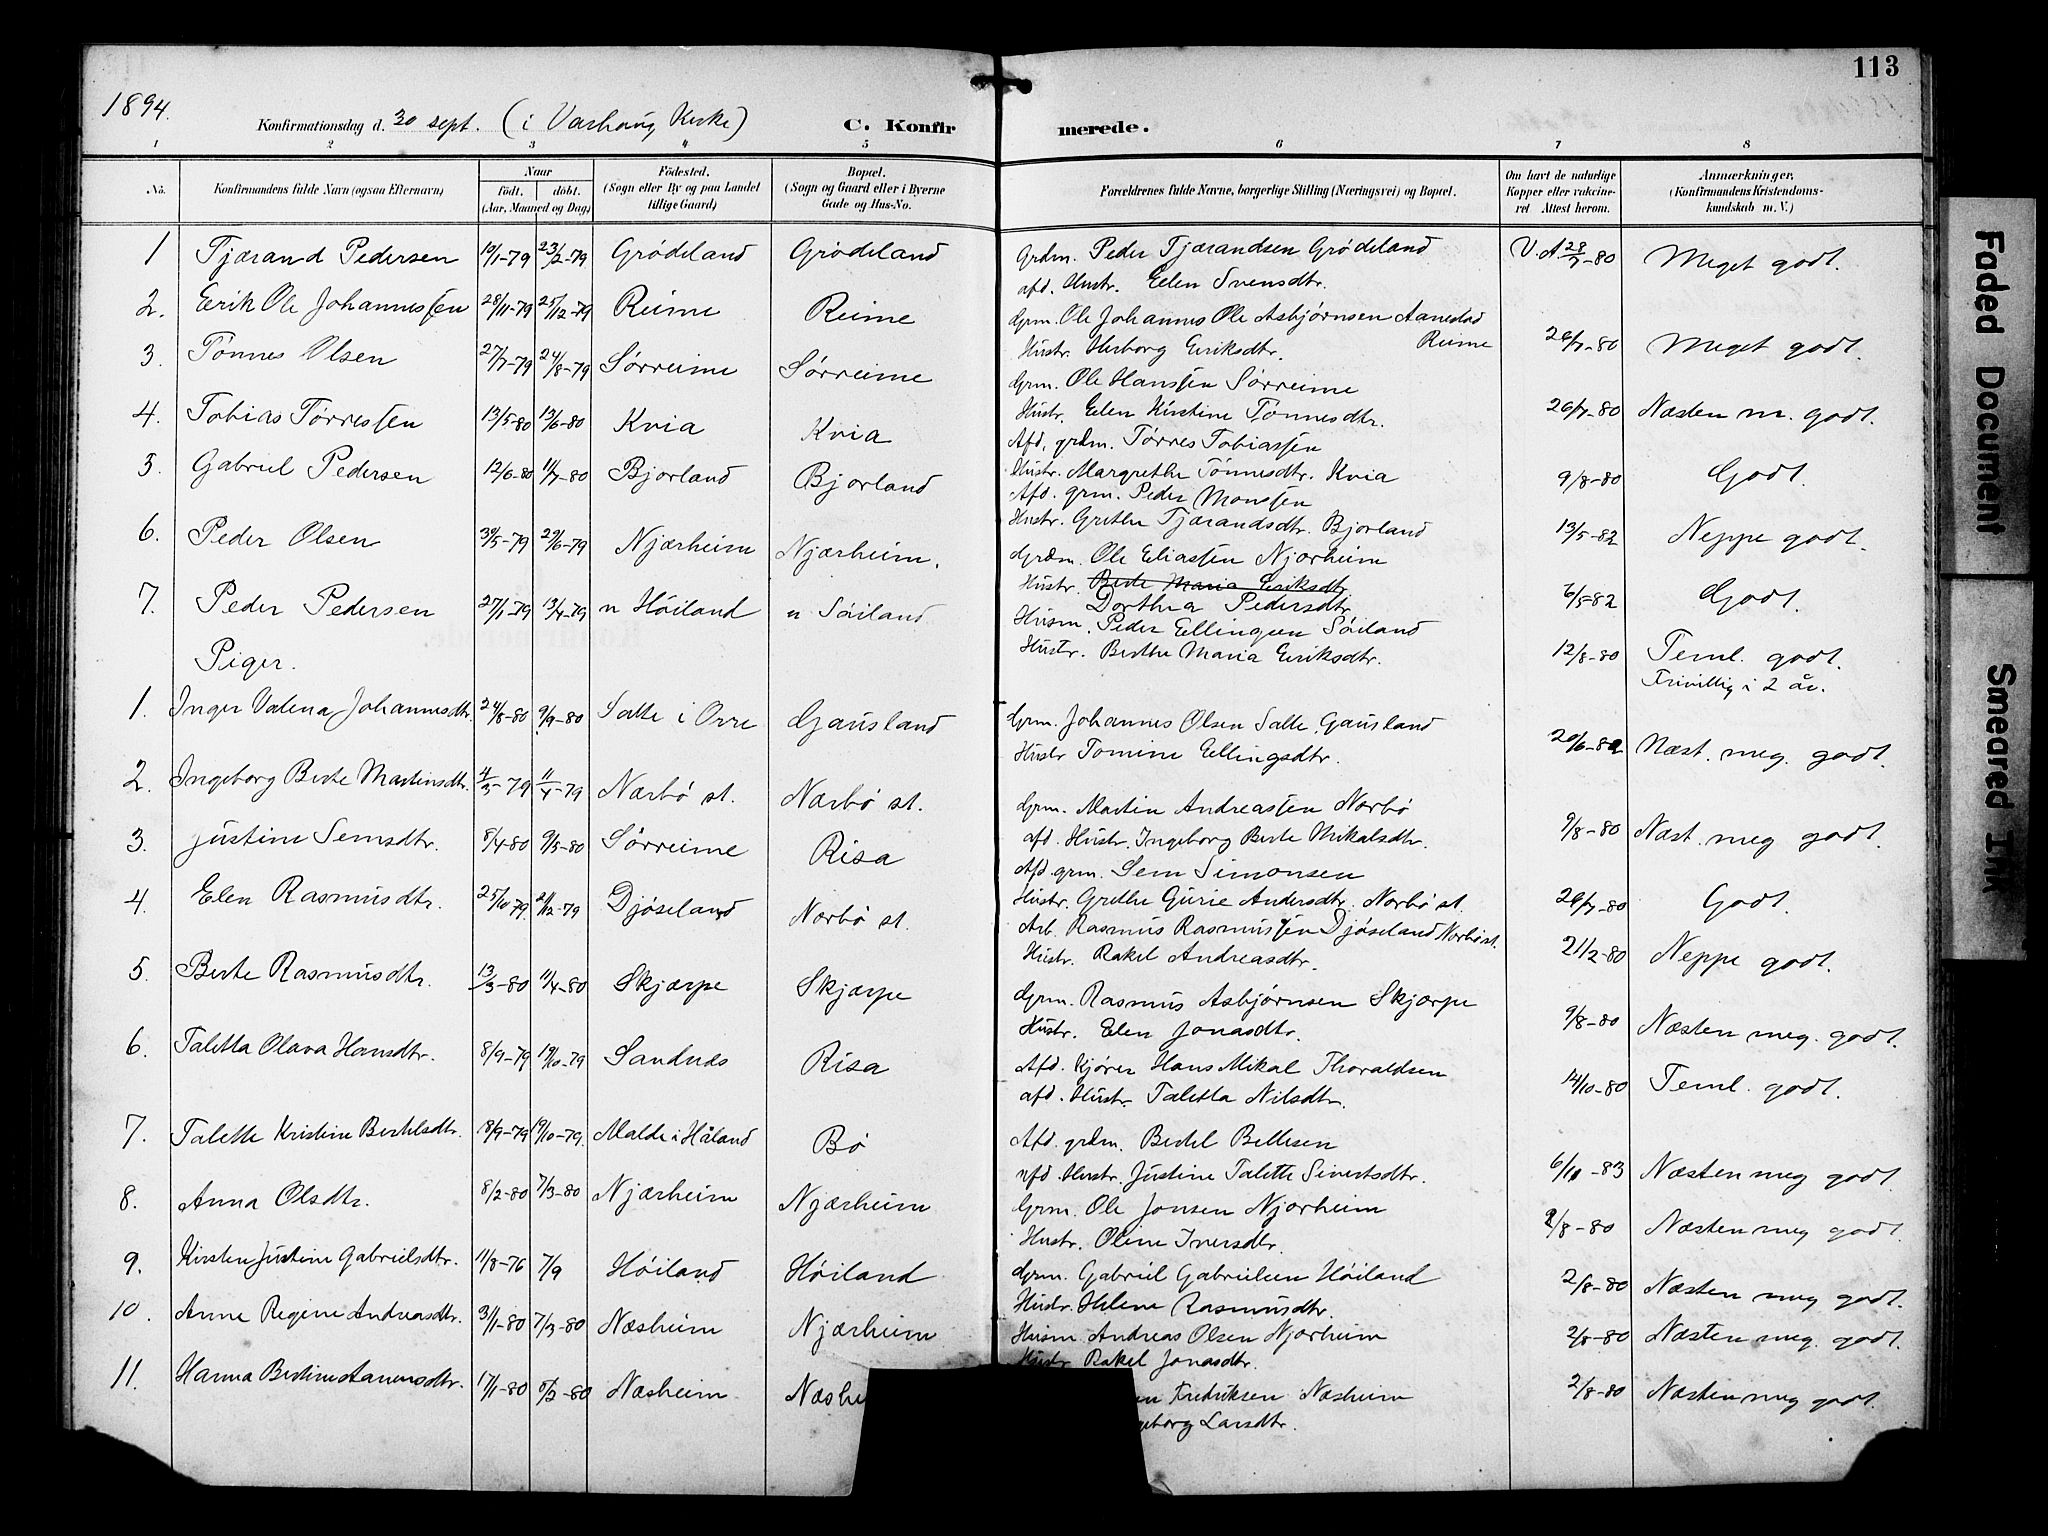 113
1894.
Konfirmationsdag d. 30 sept. (i Varhaug Kirke) C. Konfirmerede.
1 2 3 4 5 6 7 8
No. Konfirmandens fulde Navn (ogsaa Efternavn) Naar født. døbt. (Aar, Maaned og Dag) Fødested. (Sogn eller By og paa Landet tillige Gaard) Bopæl. (Sogn og Gaard eller i Byerne Gade og Hus-No. Forældrenes fulde Navne, borgerlige Stilling (Næringsvei) og Bopæl. Om havt de naturlige Kopper eller vaccineret Attest herom. Anmærkninger, (Konfirmandens Kristendomskundskab m. V.)
1 Tjærand Pedersen 10/1-79 23/2-79 Grødeland Grødeland Grdm. Peder Tjærandsen Grødeland V. A 28/7-80 Meget godt.
afd. Hustr. Elen Svensdtr.
2. Eerik Ole Johannessen 28/11-79 25/12-79 Reime Reime Grm. Ole Johannes Ole Asbjørnsen Aanestad Reime 26/7-80 Meget godt.
Hustr. Herborg Eeriksdtr.
3. Tönnes Olsen 27/7-79 24/8-79 Sørreime Sørreime Grm. Ole Hanssen Sørreime 26/7-80 Næsten m. godt.
Hustr. Elen Kirstine Tönnesdtr.
4. Tobias Tørressen 13/5-80 13/6-80 Kvia Kvia Afd. grdm. Tørres Tobiassen 9/8-80 Godt.
Hustr. Margrethe Tönnesdtr. Kvia
5. Gabriel Pedersen 12/6-80 11/7-80 Bjorland Bjorland Afd. grm. Peder Monssen 13/5-82 Neppe godt.
Hustr. Grethe Tjærandsdtr. Bjorland
6. Peder Olsen 30/5-79 29/6-79 Njærheim Njærheim. Grdm. Ole Eliassen Njærheim 6/5-82 Godt.
Hustr. Berte Maria Eeriksdt
Dorthea Pedersdtr.
7. Peder Pedersen 27/1-79 13/4-79 n Høiland n Søiland Husm. Peder Ellingsen Søiland 12/8-80 Teml. godt.
Hustr. Berthe Maria Eeriksdtr. Frivillig i 2 år.
Piger.
1. Inger Valena Johannesdtr. 24/8-80 9/9-80 Salte i Orre Gausland Grm. Johannes Olsen Salte, Gausland 20/6-82 Næst. meg. godt.
Hustr Tomine Ellingsdtr.
2. Ingeborg Berte Martinsdtr. 4/3-79 11/4-79 Nærbö st. Nærbö st. Grm. Martin Andreassen Nærbö 9/8-80 Næst. meg godt.
afd. Hustr. Ingeborg Berte Mikalsdtr.
3. Justine Semsdtr. 8/4-80 9/5-80 Sørreime Risa Afd. grm. Sem Simonsen 26/7-80 Godt.
Hustr. Grethe Gurie Andersdtr. Nærbö st.
4. Elen Rasmusdtr. 25/10-79. 21/12-79 Djøseland Nærbö st. Arb. Rasmus Rasmussen Djøseland Nærbö st. 21/2-80 Neppe godt.
Hustr. Rakel Andreasdtr.
5. Berte Rasmusdtr. 13/3-80 11/4-80 Skjærpe Skjærpe Grm. Rasmus Asbjørnsen Skjærpe 9/8-80 Næsten meg. godt.
Hustr. Elen Jonasdtr.
6. Taletta Olava Hansdtr. 8/9-79 19/10-79 Sandnes Risa Afd. Kjører Hans Mikal Thoraldsen 14/10-80 Teml. godt.
afd. Hustr. Taletta Nilsdtr.
7. Talette Kristine Bertelsdtr. 18/9-79 19/10-79. Malde i Håland Bø Afd. grdm. Bertel Bellesen 6/10-83 Næsten meg godt.
afd. Hustr. Justine Talette Sivertsdtr.
8. Anna Olsdtr. 8/2-80 7/3-80 Njærheim Njærheim Grm. Ole Jonsen Njærheim 2/8-80 Næsten meg godt.
Hustr. Oline Iversdtr.
9. Kirsten Justine Gabrielsdtr. 11/8-76 7/9 Høiland Høiland Grm. Gabriel Gabrielsen Høiland 2/8-80 Næsten meg godt.
Hustr. Helene Rasmusdtr.
10. Anne Regine Andreasdtr. 31/1-80 7/3-80 Næsheim Njærheim Husm Andreas Olsen Njærheim 2/8-80 Næsten meg. godt.
Hustr Rakel Jonasdtr.
11. Hanna Bertine Aanensdtr. 17/1-80 8/2-80 Næsheim Næshe en Fredriksen Næsheim 2/8-80 Næsten meg godt.
geborg Larsdtr.
Faded Document
Smeared Ink